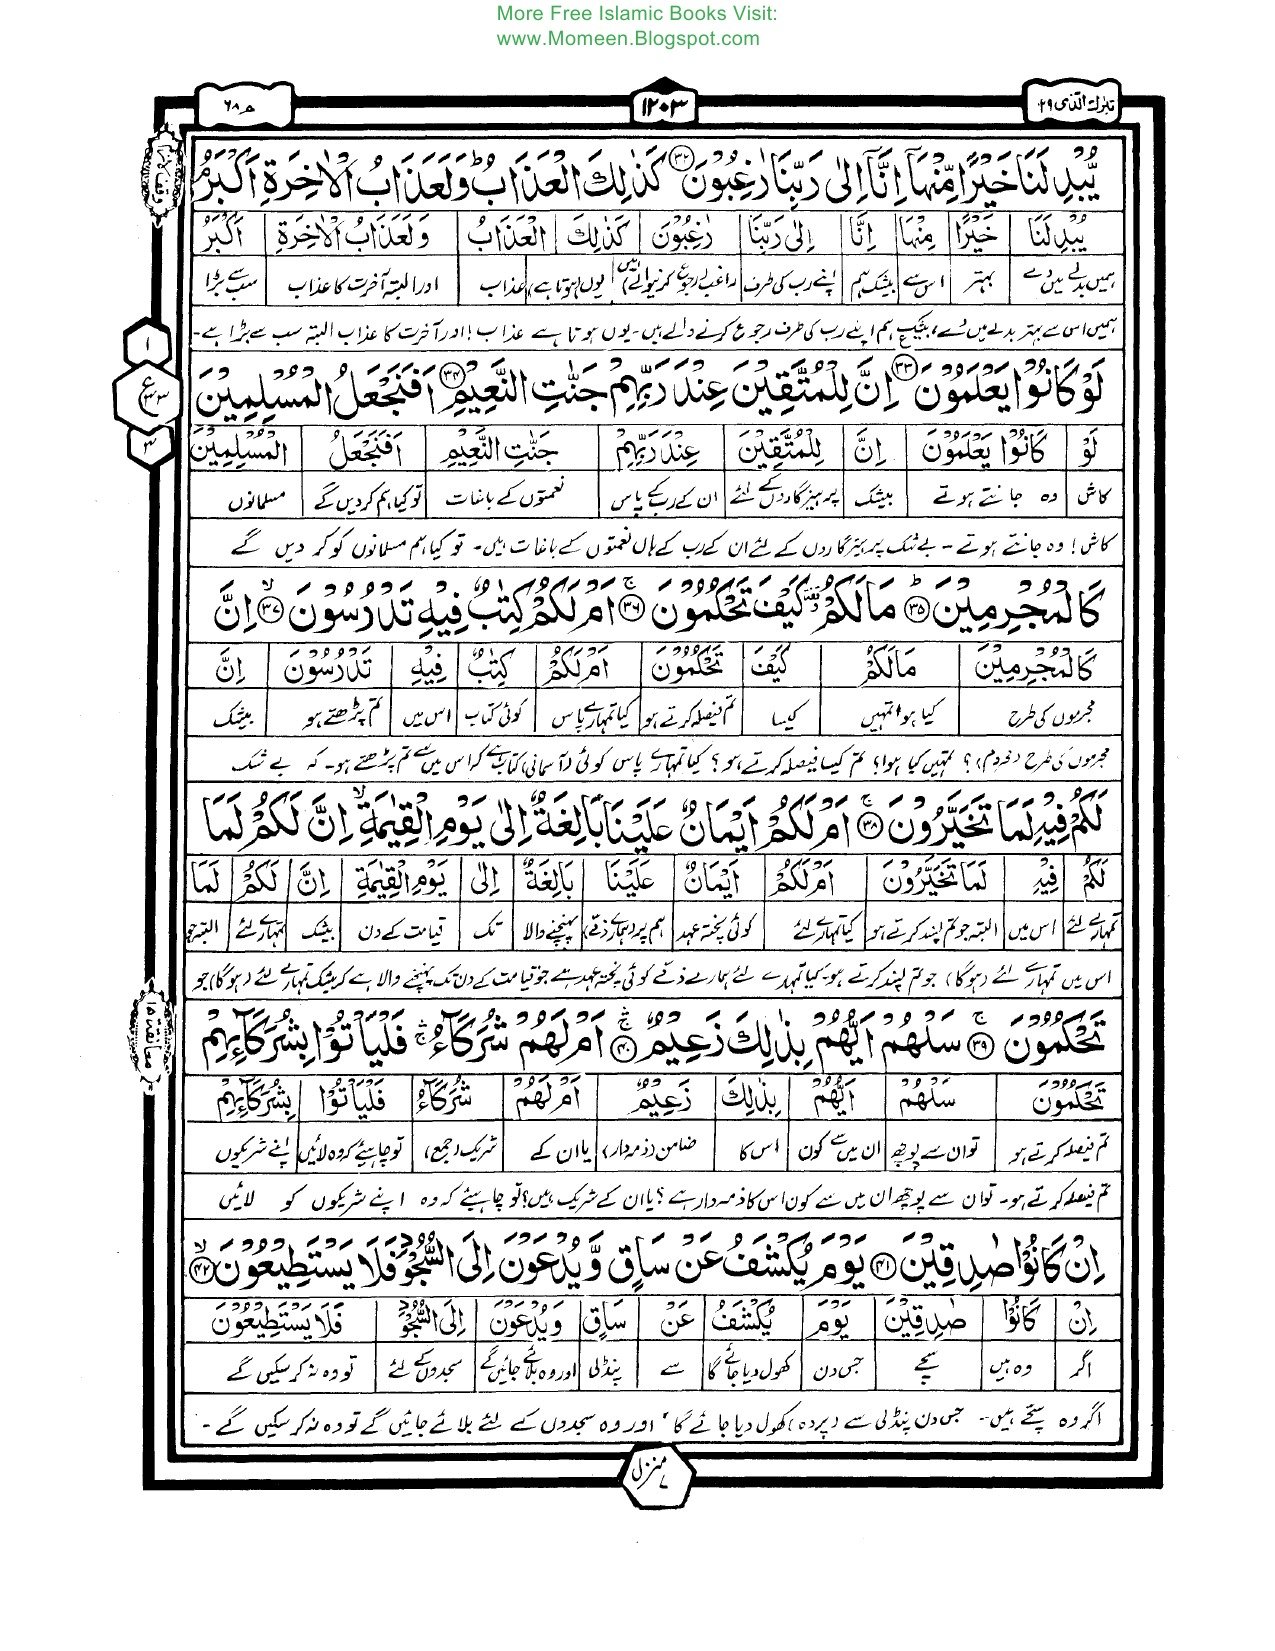 More Free Islamic Books Visit:
www.Momeen.Blogspot.com
تبٰرك الذى ٢٩
١٢٠٣
ن ٦٨
يُّبْدِلَنَا خَيْرًا مِّنْهَآ اِنَّآ اِلٰى رَبِّنَا رٰغِبُوْنَ ﴿٣٢﴾ كَذٰلِكَ الْعَذَابُ ؕ وَلَعَذَابُ الْاٰخِرَةِ اَكْبَرُ ۘ
يُبْدِلَنَا خَيْرًا مِنْهَا اِنَّا اِلٰى رَبِّنَا رٰغِبُوْنَ كَذٰلِكَ الْعَذَابُ وَلَعَذَابُ الْاٰخِرَةِ اَكْبَرُ
ہمیں بدلے میں دے بہتر اس سے بیشک ہم اپنے رب کی طرف راغب (رجوع کرنیوالے ہیں) یوں ہوتا ہے عذاب اور البتہ آخرت کا عذاب سب سے بڑا
ہمیں اس سے بہتر بدلے میں دے، بیشک ہم اپنے رب کی طرف رجوع کرنے والے ہیں۔ یوں ہوتا ہے عذاب! اور آخرت کا عذاب البتہ سب سے بڑا ہے۔
١
ع
٣٣
٣
لَوْ كَانُوْا يَعْلَمُوْنَ ﴿٣٣﴾ اِنَّ لِلْمُتَّقِيْنَ عِنْدَ رَبِّهِمْ جَنّٰتِ النَّعِيْمِ ﴿٣٤﴾ اَفَنَجْعَلُ الْمُسْلِمِيْنَ
لَوْ كَانُوْا يَعْلَمُوْنَ اِنَّ لِلْمُتَّقِيْنَ عِنْدَ رَبِّهِمْ جَنّٰتِ النَّعِيْمِ اَفَنَجْعَلُ الْمُسْلِمِيْنَ
کاش وہ جانتے ہوتے بیشک پرہیزگاروں کے لئے ان کے رب کے پاس نعمتوں کے باغات تو کیا ہم کر دیں گے مسلمانوں
کاش! وہ جانتے ہوتے۔ بے شک پرہیزگاروں کے لئے ان کے رب کے ہاں نعمتوں کے باغات ہیں۔ تو کیا ہم مسلمانوں کو کر دیں گے
كَالْمُجْرِمِيْنَ ﴿٣٥﴾ؕ مَا لَكُمْ كَيْفَ تَحْكُمُوْنَ ﴿٣٦﴾ۚ اَمْ لَكُمْ كِتٰبٌ فِيْهِ تَدْرُسُوْنَ ﴿٣٧﴾ۙ اِنَّ
كَالْمُجْرِمِيْنَ مَالَكُمْ كَيْفَ تَحْكُمُوْنَ اَمْ لَكُمْ كِتٰبٌ فِيْهِ تَدْرُسُوْنَ اِنَّ
مجرموں کی طرح کیا ہوا تمہیں کیسا تم فیصلہ کرتے ہو کیا تمہارے پاس کوئی کتاب اس میں تم پڑھتے ہو بیشک
مجرموں کی طرح (محروم)؟ تمہیں کیا ہوا؟ تم کیسا فیصلہ کرتے ہو؟ کیا تمہارے پاس کوئی (آسمانی) کتاب ہے کہ اس میں سے تم پڑھتے ہو۔ کہ بے شک
لَكُمْ فِيْهِ لَمَا تَخَيَّرُوْنَ ﴿٣٨﴾ۚ اَمْ لَكُمْ اَيْمَانٌ عَلَيْنَا بَالِغَةٌ اِلٰى يَوْمِ الْقِيٰمَةِ ۙ اِنَّ لَكُمْ لَمَا
لَكُمْ فِيْهِ لَمَا تَخَيَّرُوْنَ اَمْ لَكُمْ اَيْمَانٌ عَلَيْنَا بَالِغَةٌ اِلٰى يَوْمِ الْقِيٰمَةِ اِنَّ لَكُمْ لَمَا
تمہارے لئے اس میں البتہ جو تم پسند کرتے ہو کیا تمہارے لئے کوئی پختہ عہد ہم پر (ہمارے ذمے) پہنچنے والا تک قیامت کے دن بیشک تمہارے لئے البتہ جو
اس میں تمہارے لئے (ہوگا) جو تم پسند کرتے ہو۔ کیا تمہارے لئے ہمارے ذمے کوئی پختہ عہد ہے جو قیامت کے دن تک پہنچنے والا ہے کہ بیشک تمہارے لئے (ہوگا) جو
معانقة ١٥
تَحْكُمُوْنَ ﴿٣٩﴾ۚ سَلْهُمْ اَيُّهُمْ بِذٰلِكَ زَعِيْمٌ ﴿٤٠﴾ۚ اَمْ لَهُمْ شُرَكَآءُ ۚ فَلْيَاْتُوْا بِشُرَكَآئِهِمْ
تَحْكُمُوْنَ سَلْهُمْ اَيُّهُمْ بِذٰلِكَ زَعِيْمٌ اَمْ لَهُمْ شُرَكَآءُ فَلْيَاْتُوْا بِشُرَكَآئِهِمْ
تم فیصلہ کرتے ہو تو ان سے پوچھ ان میں سے کون اس کا ضامن (ذمہ دار) یا ان کے شریک (جمع) تو چاہیئے کہ وہ لائیں اپنے شریکوں
تم فیصلہ کرتے ہو۔ تو ان سے پوچھ ان میں سے کون اس کا ذمہ دار ہے؟ یا ان کے شریک ہیں؟ تو چاہیئے کہ وہ اپنے شریکوں کو لائیں
اِنْ كَانُوْا صٰدِقِيْنَ ﴿٤١﴾ يَوْمَ يُكْشَفُ عَنْ سَاقٍ وَّيُدْعَوْنَ اِلَى السُّجُوْدِ فَلَا يَسْتَطِيْعُوْنَ ﴿٤٢﴾ۙ
اِنْ كَانُوْا صٰدِقِيْنَ يَوْمَ يُكْشَفُ عَنْ سَاقٍ وَيُدْعَوْنَ اِلَى السُّجُوْدِ فَلَا يَسْتَطِيْعُوْنَ
اگر وہ ہیں سچے جس دن کھول دیا جائے گا سے پنڈلی اور وہ بلائے جائیں گے سجدوں کے لئے تو وہ نہ کر سکیں گے
اگر وہ سچے ہیں۔ جس دن پنڈلی سے (پردہ) کھول دیا جائے گا، اور وہ سجدوں کے لئے بلائے جائیں گے تو وہ نہ کر سکیں گے۔
منزل ٧